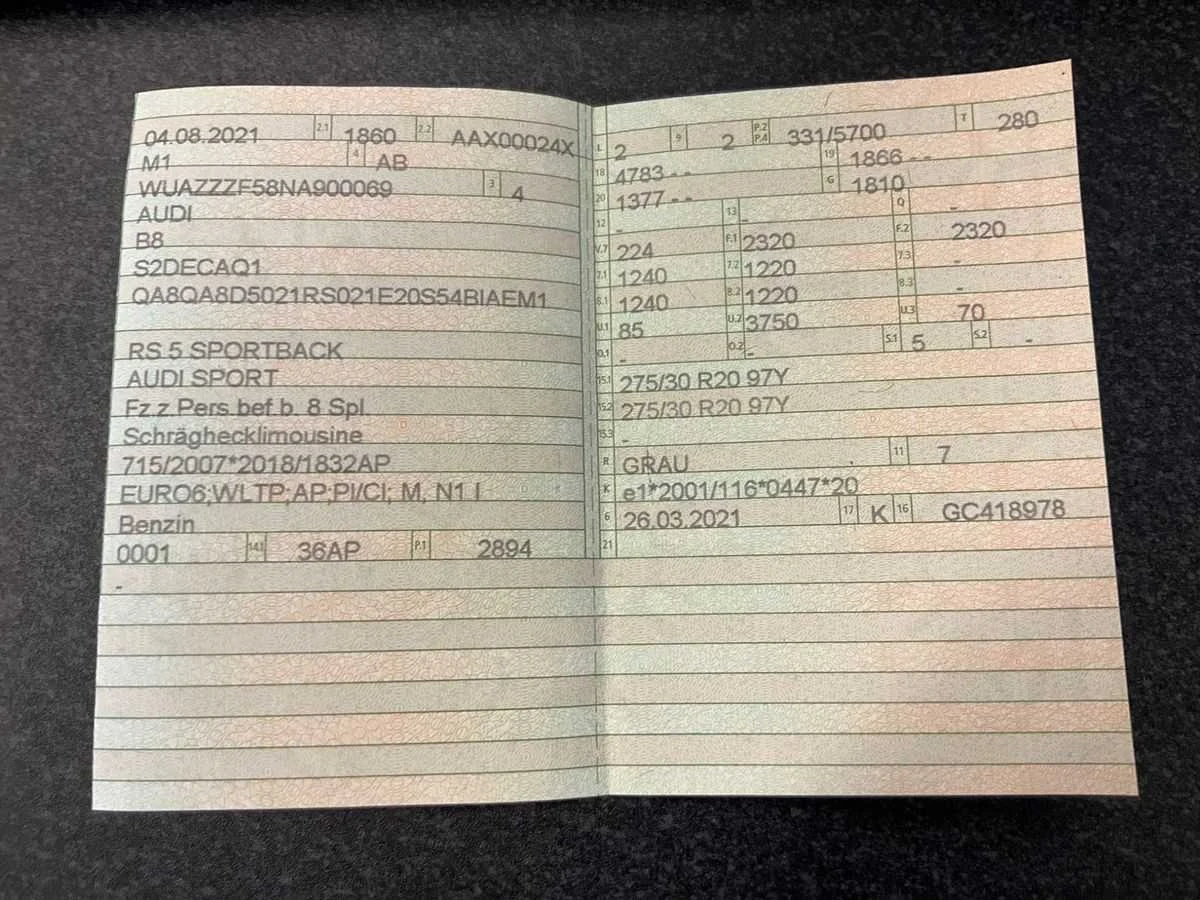 04.08.2021 2.1 1860 2.2 AAX00024X
M1 4 AB
WUAZZZF58NA900069 3 4
AUDI
B8
S2DECAQ1
QA8QA8D5021RS021E20S54BIAEM1
RS 5 SPORTBACK
AUDI SPORT
Fz.z.Pers.bef.b. 8 Spl.
Schräghecklimousine
715/2007*2018/1832AP
EURO6;WLTP;AP;PI/CI; M, N1 I
Benzin
0001 14.1 36AP P.1 2894
-
L 2 9 2 P.2 P.4 331/5700 T 280
18 4783 - - 19 1866 - -
20 1377 - - G 1810
12 - 13 - Q -
V.7 224 F.1 2320 F.2 2320
7.1 1240 7.2 1220 7.3 -
8.1 1240 8.2 1220 8.3 -
U.1 85 U.2 3750 U.3 70
O.1 - O.2 - S.1 5 S.2 -
15.1 275/30 R20 97Y
15.2 275/30 R20 97Y
15.3 -
R GRAU 11 7
K e1*2001/116*0447*20
6 26.03.2021 17 K 16 GC418978
21